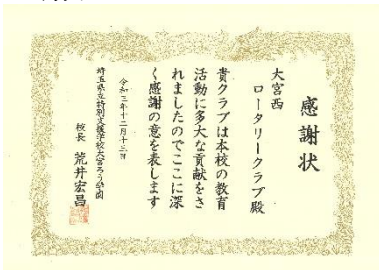 感謝状
大宮西
ロータリークラブ殿
貴クラブは本校の教育
活動に多大な貢献をさ
れましたのでここに深
く感謝の意を表します
令和三年十二月十三日
埼玉県立特別支援学校大宮ろう学園
校長 荒井宏昌